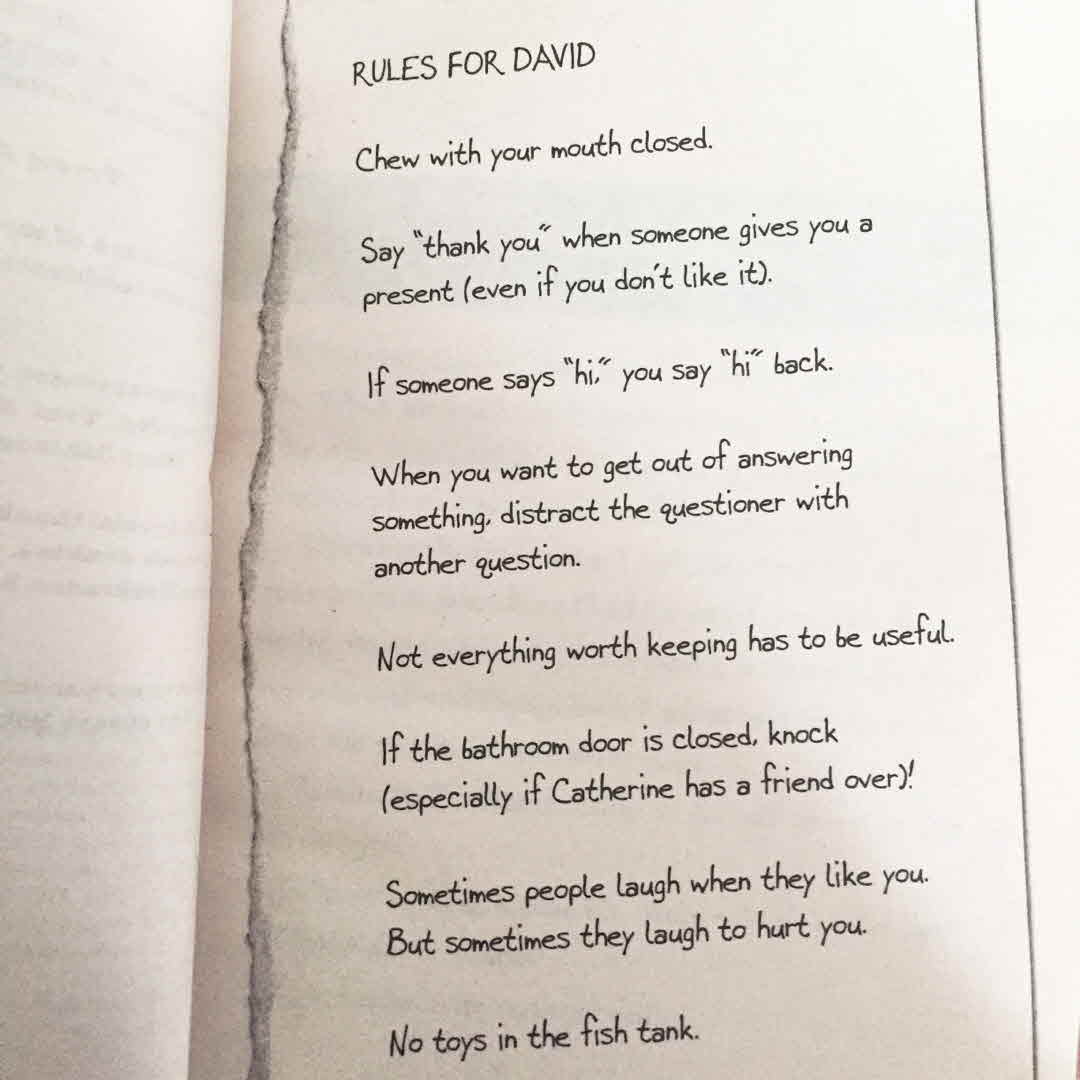 RULES FOR DAVID
Chew with your mouth closed.
Say “thank you” when someone gives you a
present (even if you don't like it).
If someone says “hi,” you say “hi” back.
When you want to get out of answering
something, distract the questioner with
another question.
Not everything worth keeping has to be useful.
If the bathroom door is closed, knock
(especially if Catherine has a friend over)!
Sometimes people laugh when they like you.
But sometimes they laugh to hurt you.
No toys in the fish tank.